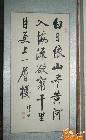 白日依山尽黄河
入海流欲穷千里
目更上一层楼